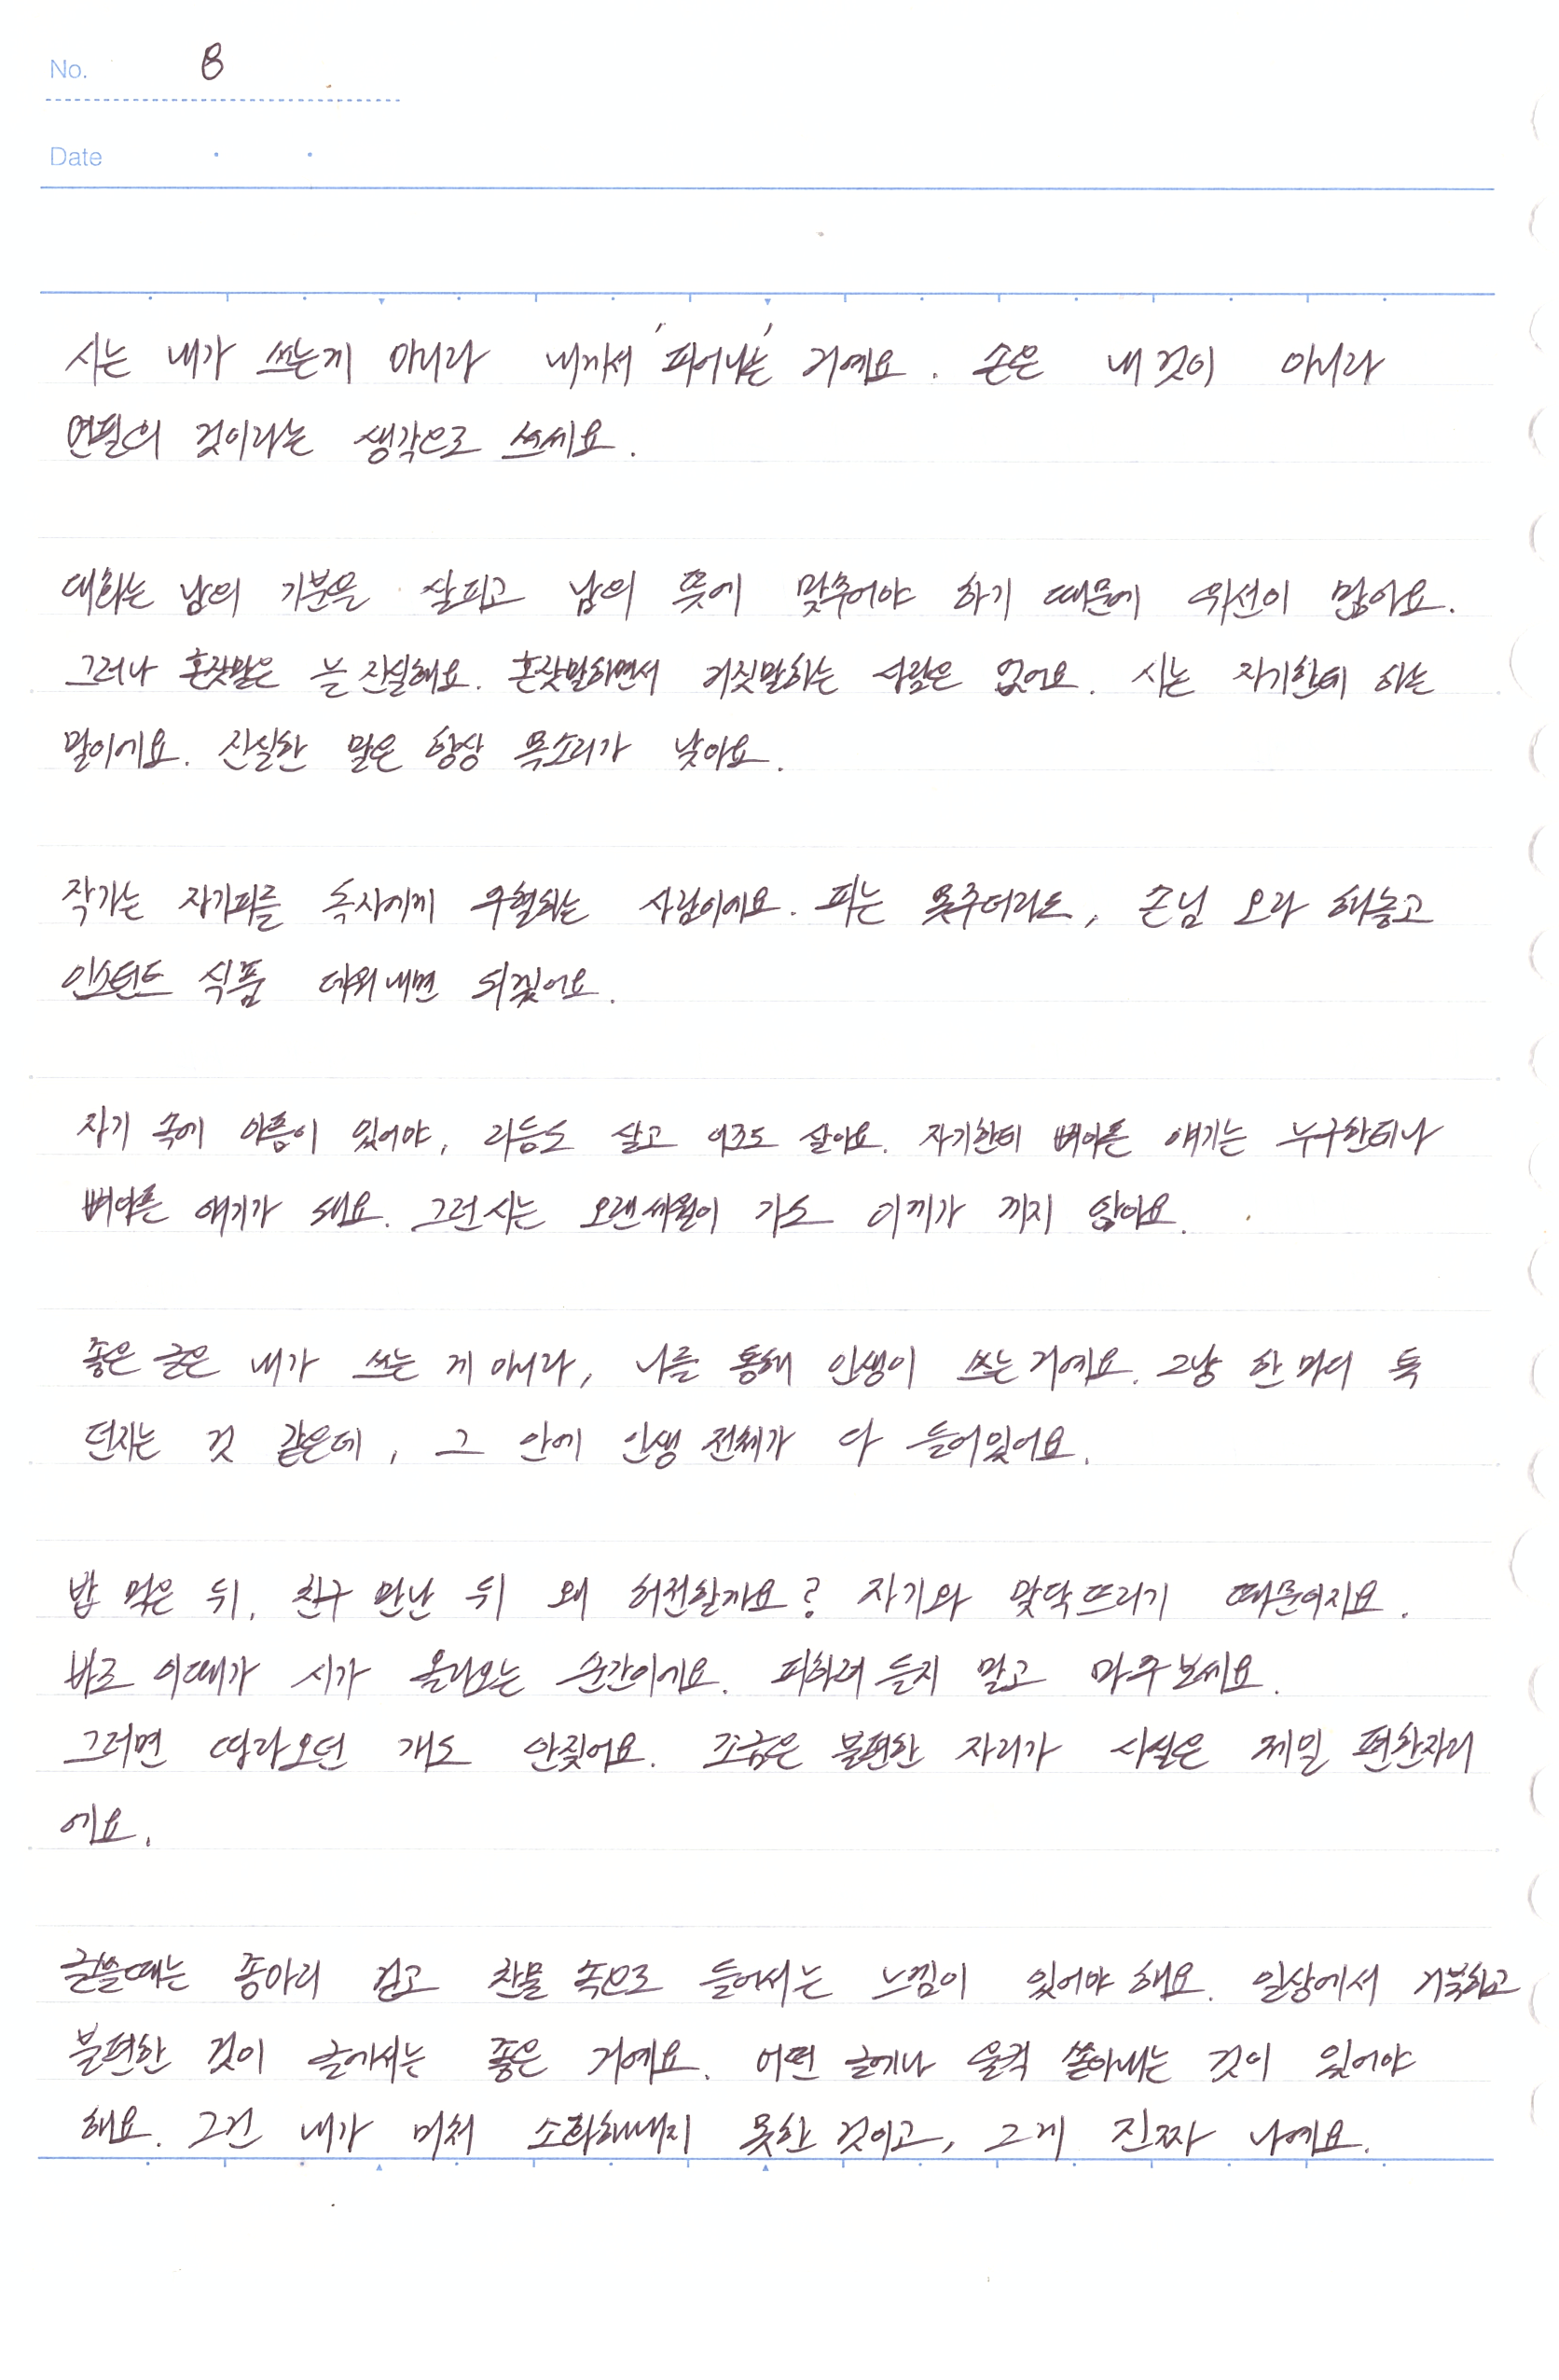 No. 8
Date
시는 내가 쓰는게 아니라 내게서 '피어나는' 거예요. 손은 내 것이 아니라
연필의 것이라는 생각으로 쓰세요.
대화는 남의 기분을 살피고 남의 뜻에 맞추어야 하기 때문에 위선이 많아요.
그러나 혼잣말은 늘 진실해요. 혼잣말하면서 거짓말하는 사람은 없어요. 시는 자기한테 하는
말이에요. 진실한 말은 항상 목소리가 낮아요.
작가는 자기피를 독자에게 수혈하는 사람이에요. 피는 못주더라도, 손님 오라 해놓고
인스턴트 식품 데워내면 되겠어요.
자기 속에 아픔이 있어야, 감동도 살고 어조도 살아요. 자기한테 뼈아픈 얘기는 누구한테나
뼈아픈 얘기가 돼요. 그런시는 오랜세월이 가도 이끼가 끼지 않아요.
좋은 글은 내가 쓰는 게 아니라, 나를 통해 인생이 쓰는거예요. 그냥 한 마디 툭
던지는 것 같은데, 그 안에 인생 전체가 다 들어있어요.
밥 먹은 뒤, 친구 만난 뒤 왜 허전할까요? 자기와 맞닥뜨리기 때문이지요.
바로 이때가 시가 올라오는 순간이에요. 피하려 들지 말고 마주보세요.
그러면 따라오던 개도 안짖어요. 조금은 불편한 자리가 사실은 제일 편한자리
에요.
글쓸때는 종아리 걷고 찬물 속으로 들어서는 느낌이 있어야 해요. 일상에서 거북하고
불편한 것이 글에서는 좋은 거예요. 어떤 글에나 울컥 쏟아내는 것이 있어야
해요. 그건 내가 미처 소화해내지 못한 것이고, 그게 진짜 나예요.